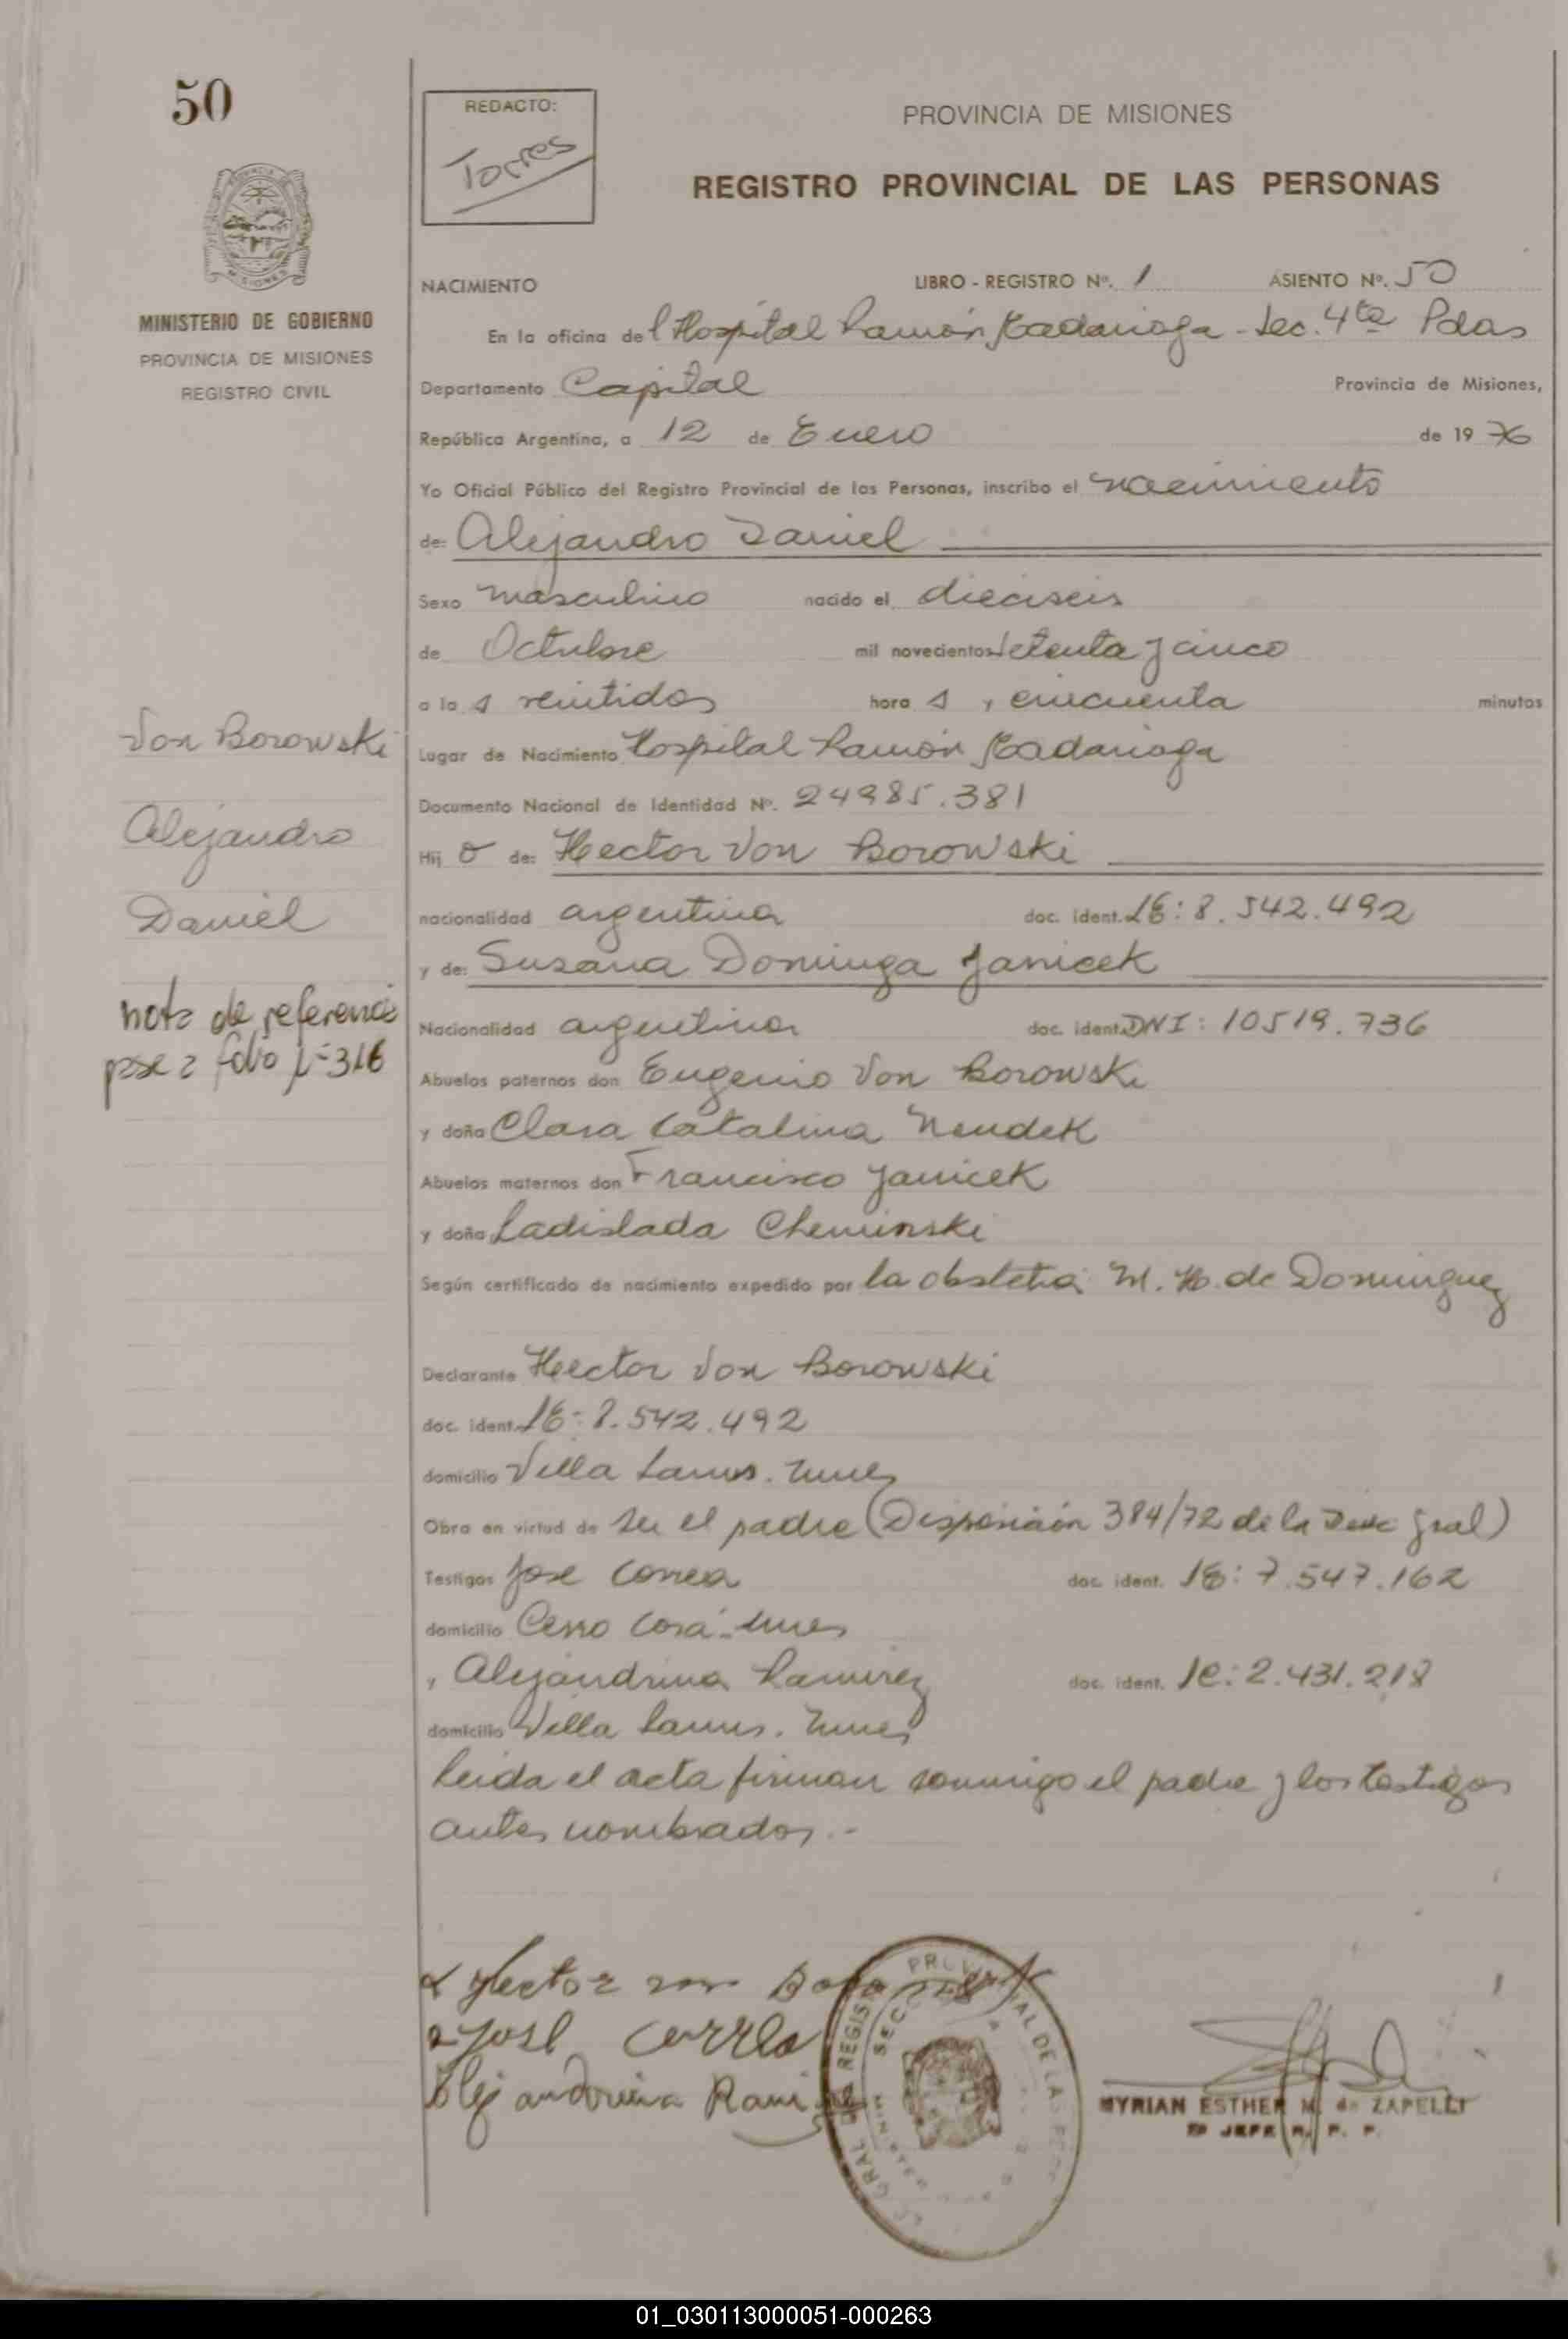 50
REDACTO:
Torres
PROVINCIA DE MISIONES
REGISTRO PROVINCIAL DE LAS PERSONAS
MINISTERIO DE GOBIERNO
PROVINCIA DE MISIONES
REGISTRO CIVIL
NACIMIENTO LIBRO - REGISTRO Nº. 1 ASIENTO Nº. 50
En la oficina del Hospital Ramón Madariaga - Sec. 4ta Pdas
Departamento Capital Provincia de Misiones,
República Argentina, a 12 de Enero de 1976
Yo Oficial Público del Registro Provincial de las Personas, inscribo el nacimiento
de: Alejandro Daniel
Sexo masculino nacido el dieciseis
de Octubre mil novecientos setenta y cinco
a la s veintidos hora s y cincuenta minutos
Von Borowski
Alejandro
Daniel
nota de referencia
pase a folio 316
Lugar de Nacimiento Hospital Ramón Madariaga
Documento Nacional de Identidad Nº. 24985.381
Hij o de: Hector Von Borowski
nacionalidad argentina doc. ident. LE: 8.542.492
y de: Susana Dominga Janicek
Nacionalidad argentina doc. ident. DNI: 10519.736
Abuelos paternos don Eugenio Von Borowski
y doña Clara Catalina Nendek
Abuelos maternos don Francisco Janicek
y doña Ladislada Cheminski
Según certificado de nacimiento expedido por la obstetra M. H. de Dominguez
Declarante Hector Von Borowski
doc. ident. LE: 8.542.492
domicilio Villa Lanus.
Obra en virtud de ser el padre (Disposición 384/72 de la Gral)
Testigos Jose Correa doc. ident. LE: 7.547.162
domicilio Cerro Corá
y Alejandrina Ramirez doc. ident. lc: 2.431.218
domicilio Villa Lanus.
Leida el acta firman conmigo el padre y los testigos
antes nombrados.-
Hector von Borowski
Jose Correa
Alejandrina Rami
MYRIAN ESTHER M. de ZAPELLI
JEFE R. P. P.
01_030113000051-000263